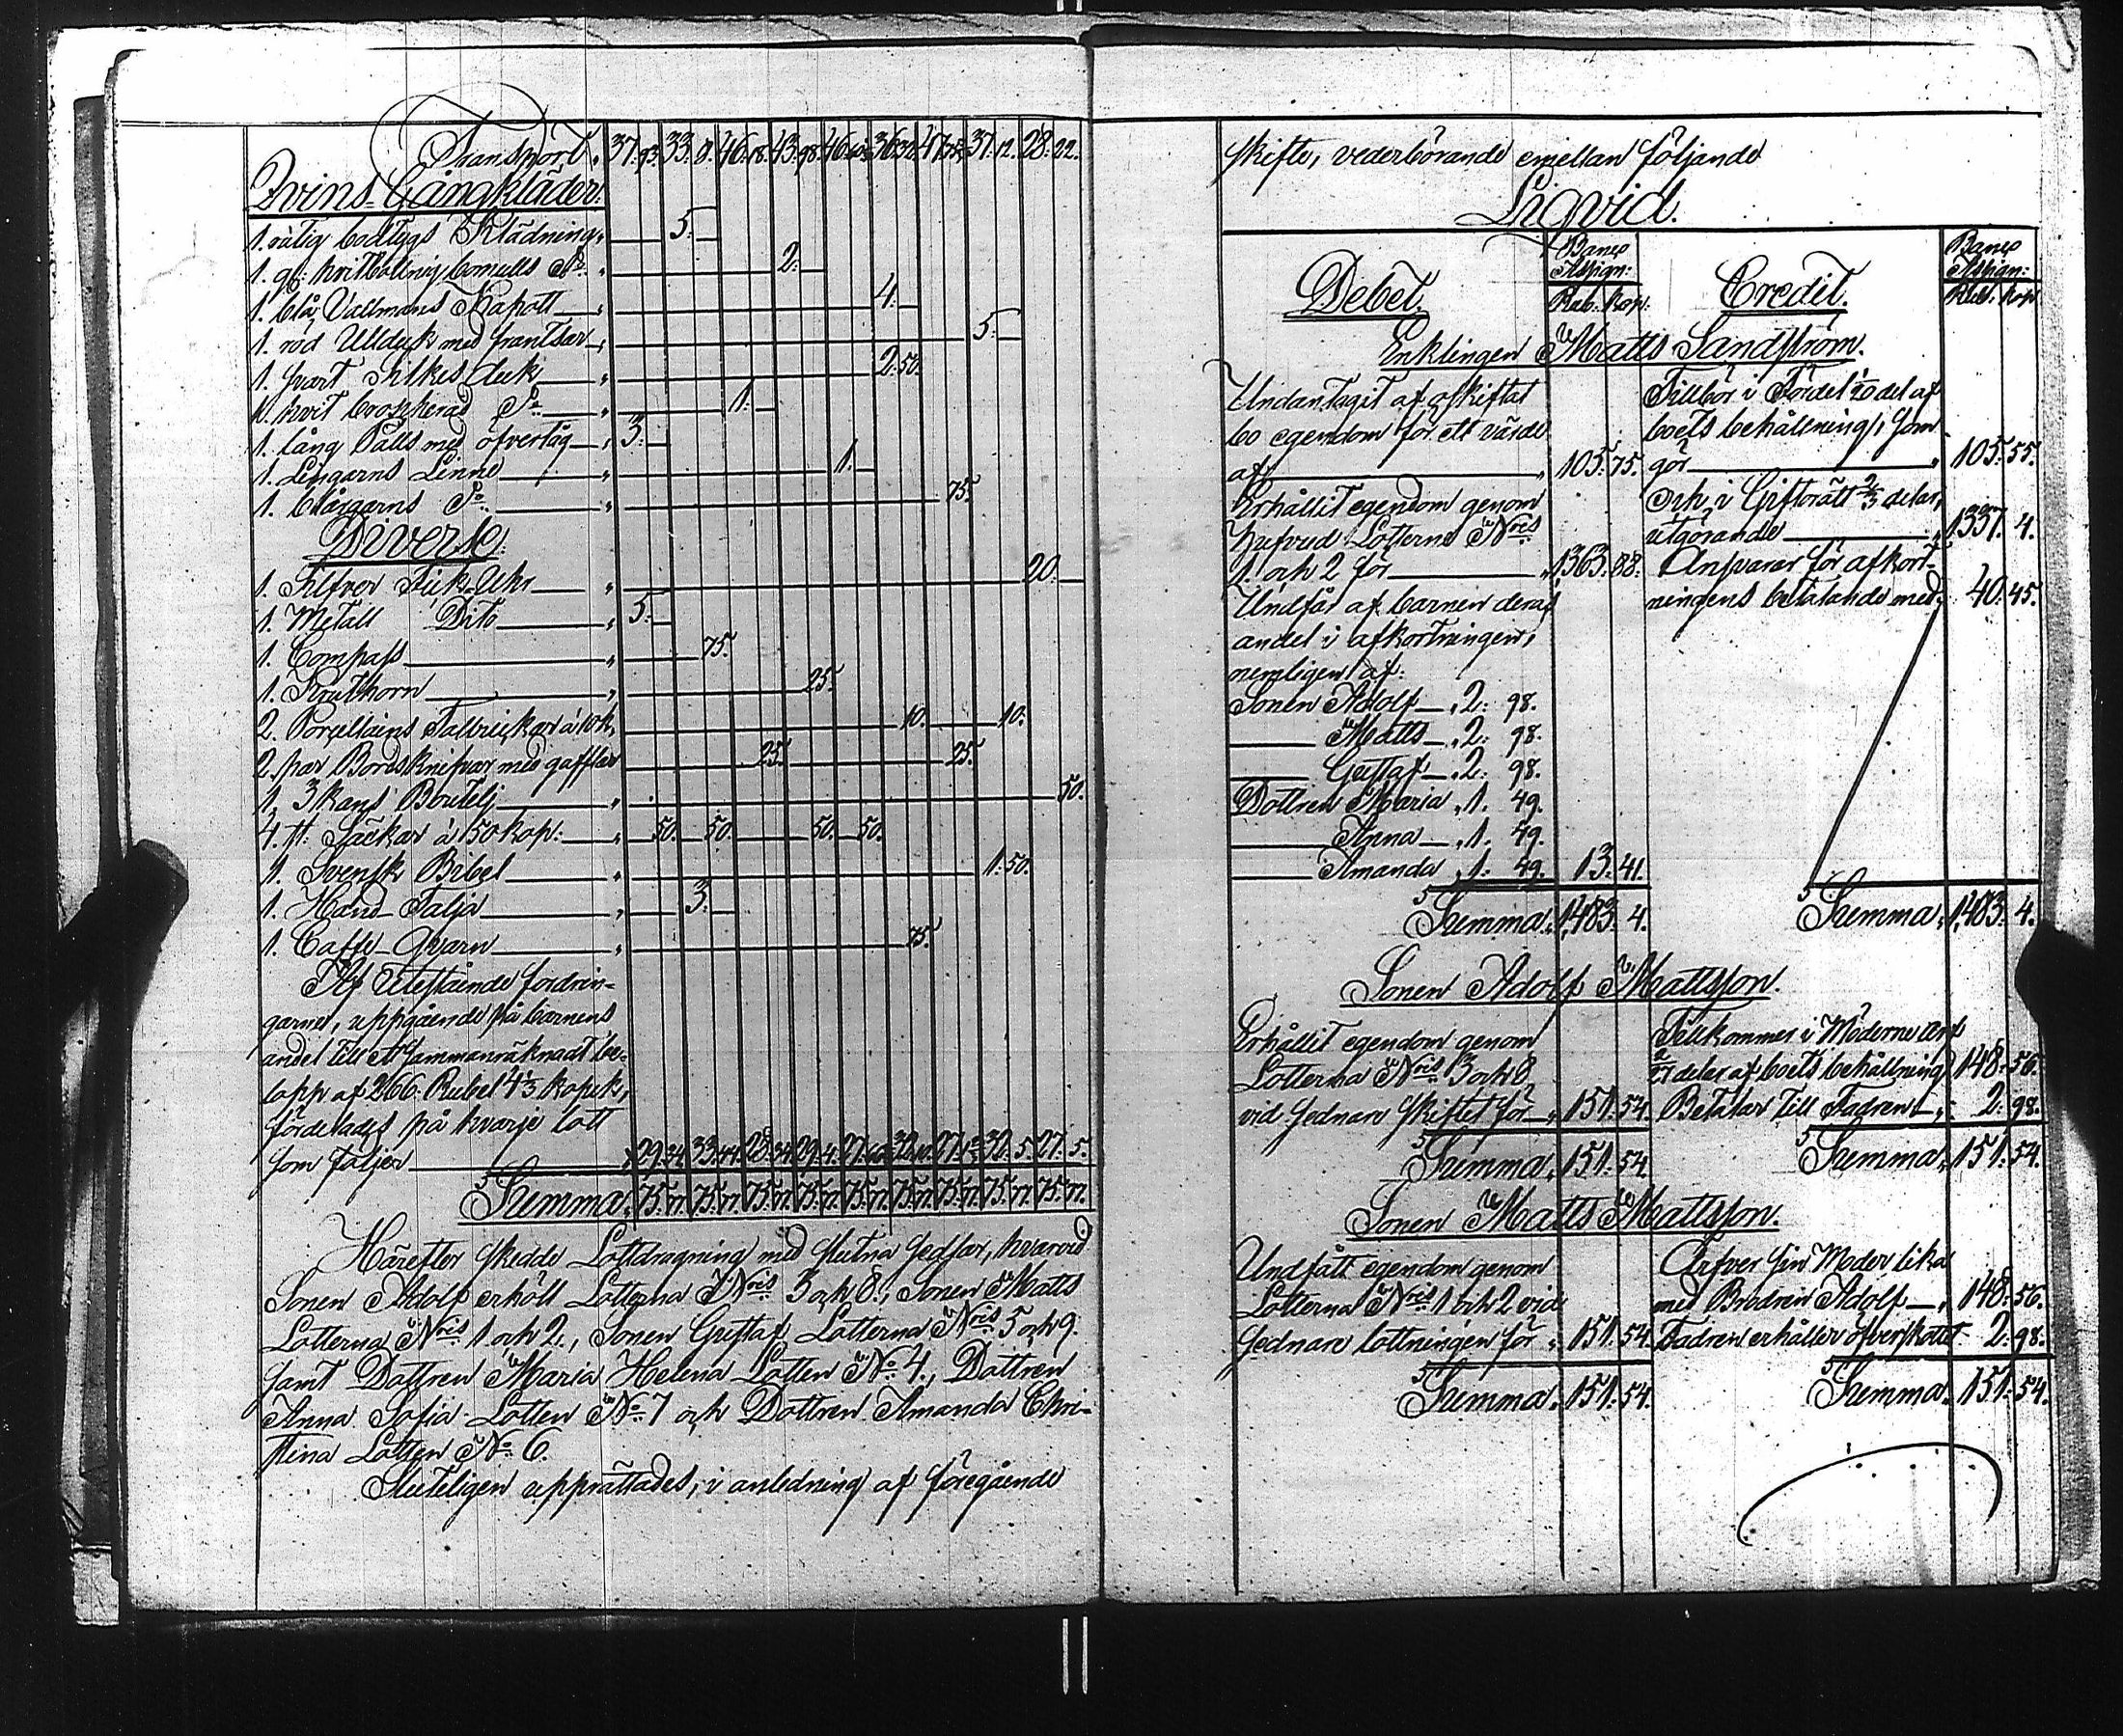 Transport " 37. 93. 33. 8. 46. 18. 43. 98. 46. 36. 32. 47. 37. 12. 28. 22.
Qvins-Gångkläder:
1. rålig bodtygs Klädning " 5.
1. gl: hvitbottnig bomulls D:o " 2.
1. blå Vallmans Kapott " 4.
1. röd Ulldyk med frantsar " 5.
1. svart Silkes duk " 2. 50.
1. hvit brocherad D:o " 1.
1. lång Pälls med öfvertåg " 3.
1. Lingarns Linne " 1.
1. blårgarns D:o " 75.
Diverse:
1. Silfver Fick-Uhr " 20.
1. Metall Dito " 5.
1. Compass " 75.
1. Kruthorn " 25.
2. Porcellains Tallrickar à 10 k. 10. 10.
2. par Bordsknifvar med gafflar 25. 25.
1. 3 kans Boutelj " 50.
4. st. Säckar à 50 kop: " 50. 50. 50. 50.
1. Svensk Bibel " 1. 50.
1. Hand Talja " 3.
1. Caffe Qvarn " 75.
Af Utestående fordrin-
garne, uppgående på barnens
andel till ett sammanräknadt be-
lopp af 266 Rubel 4 1/3 kopek,
fördelades på hvarje lott
som följer " 29. 34. 33. 44. 28. 34. 29. 4. 27. 32. 10. 27. 12. 32. 5. 27. 5.
Summa, 75. 77. 75. 77. 75. 77. 75. 77. 75. 77. 75. 77. 75. 77. 75. 77. 75. 77.
Härefter skedde Lottdragning med slutna sedlar, hvarvid
Sonen Adolf erhöll Lotterna N:ris 3 och 8, Sonen Matts
Lotterna N:ris 1 och 2, Sonen Gustaf Lotterna N:ris 5 och 9.
samt Dottren Maria Helena Lotten N:o 4, Dottren
Anna Sofia Lotten N:o 7 och Dottren Amanda Chri-
stina Lotten N:o 6.
Sluteligen upprättades, i anledning af föregående
skifte, vederbörande emellan följande
Liqvid.
Debet. Banco Assign: Rub. kop: Credit. Banco Assign: Rub. kop
Enklingen Matts Sandström.
Undantagit af oskiftat
bo egendom för ett värde
af " 105. 75.
Erhållit egendom genom
hufvud Lotterna N:ris
1. och 2 för " 1363. 88.
Undfår af barnen deras
andel i afkortningen,
nemligen af:
Sonen Adolf " 2. 98.
Matts " 2. 98.
Gustaf " 2. 98.
Dottren Maria " 1. 49.
Anna " 1. 49.
Amanda " 1. 49. 13. 41.
Summa, 1,483. 4.
Tillhör i Fördel 1/20 del af
boets behållning, som
gör " 105. 55.
Och i Giftorätt 2/3 delar,
utgörande " 1337. 4.
Ansvarar för afkort-
ningens betalande med 40. 45.
Summa, 1,483. 4.
Sonen Adolf Mattsson.
Erhållit egendom genom
Lotterna N:ris 3 och 8
vid sednare skiftet för " 151. 54.
Summa, 151. 54.
Tillkommer i Möderne arf
delar af boets behållning 148. 56.
Betalar till Fadren " 2. 98.
Summa, 151. 54.
Sonen Matts Mattsson.
Undfått egendom genom
Lotterna N:ris 1 och 2 vid
sednare lottningen för " 151. 54.
Summa, 151. 54.
Ärfver sin Moder lika
med Brodren Adolf " 148. 56.
Fadren erhåller öfverskottet 2. 98.
Summa, 151. 54.